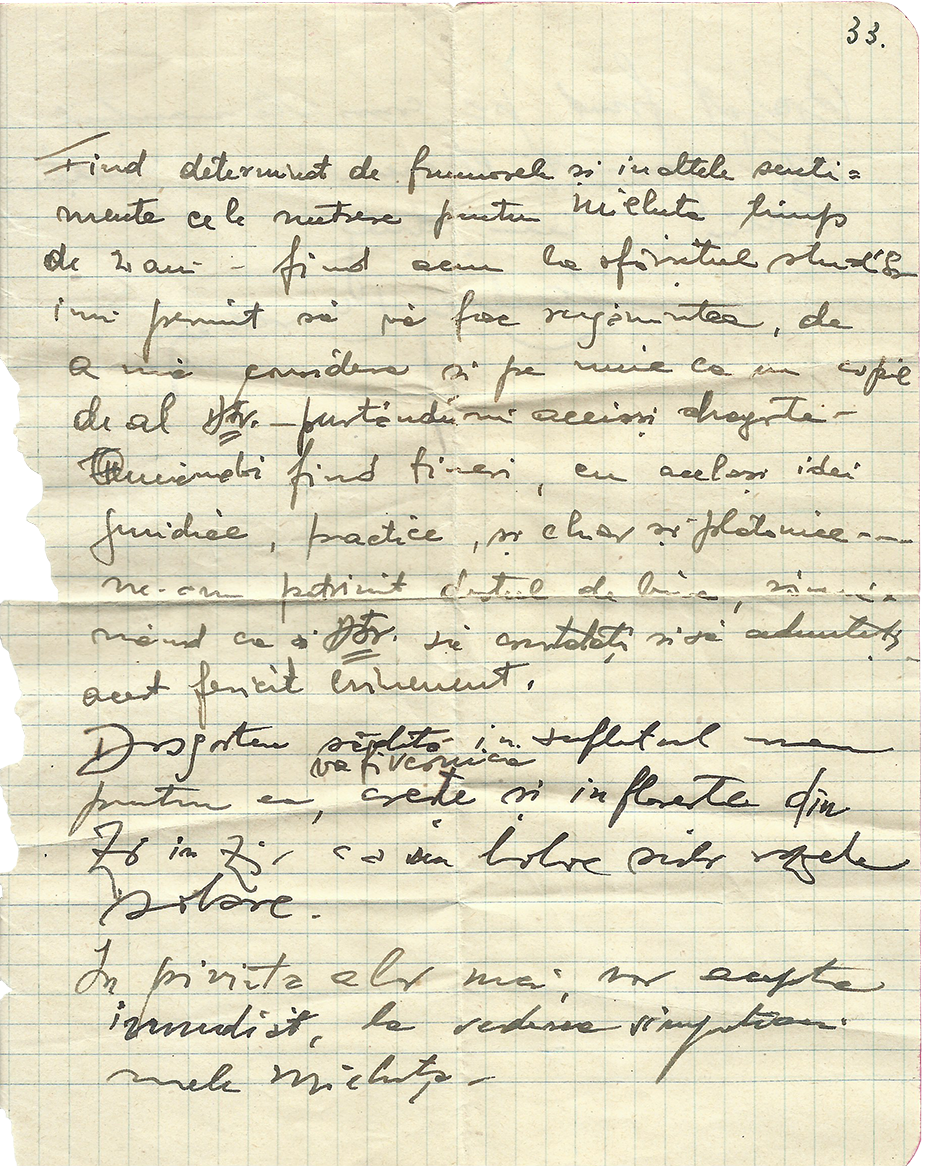 33.
Fiind determinat de frumoasele si inaltele senti=
mente ce le nutresc pentru Micluta timp
de 2 ani - fiind acum la sfârsitul
imi permit să vă fac rugămintea, de
a mă considera si pe mine ca un copil
de al Dtr. - purtându-mi aceiasi dragoste -
fiind tineri, cu acelasi idei
juridice, practice, si chiar si platonice ---
ne-am potrivit destul de bine,
rămând ca si Dtr. să constatați si să admiteți
acest fericit eveniment.
Dragostea sădită in sufletul meu
va fi vesnica
pentru ea, creste si infloreste din
Zi in Zi, ca un boboc sub razele
solare.
In privinta alor mei, vor accepta
immediat, la vederea simpatiei
mele Micluța -